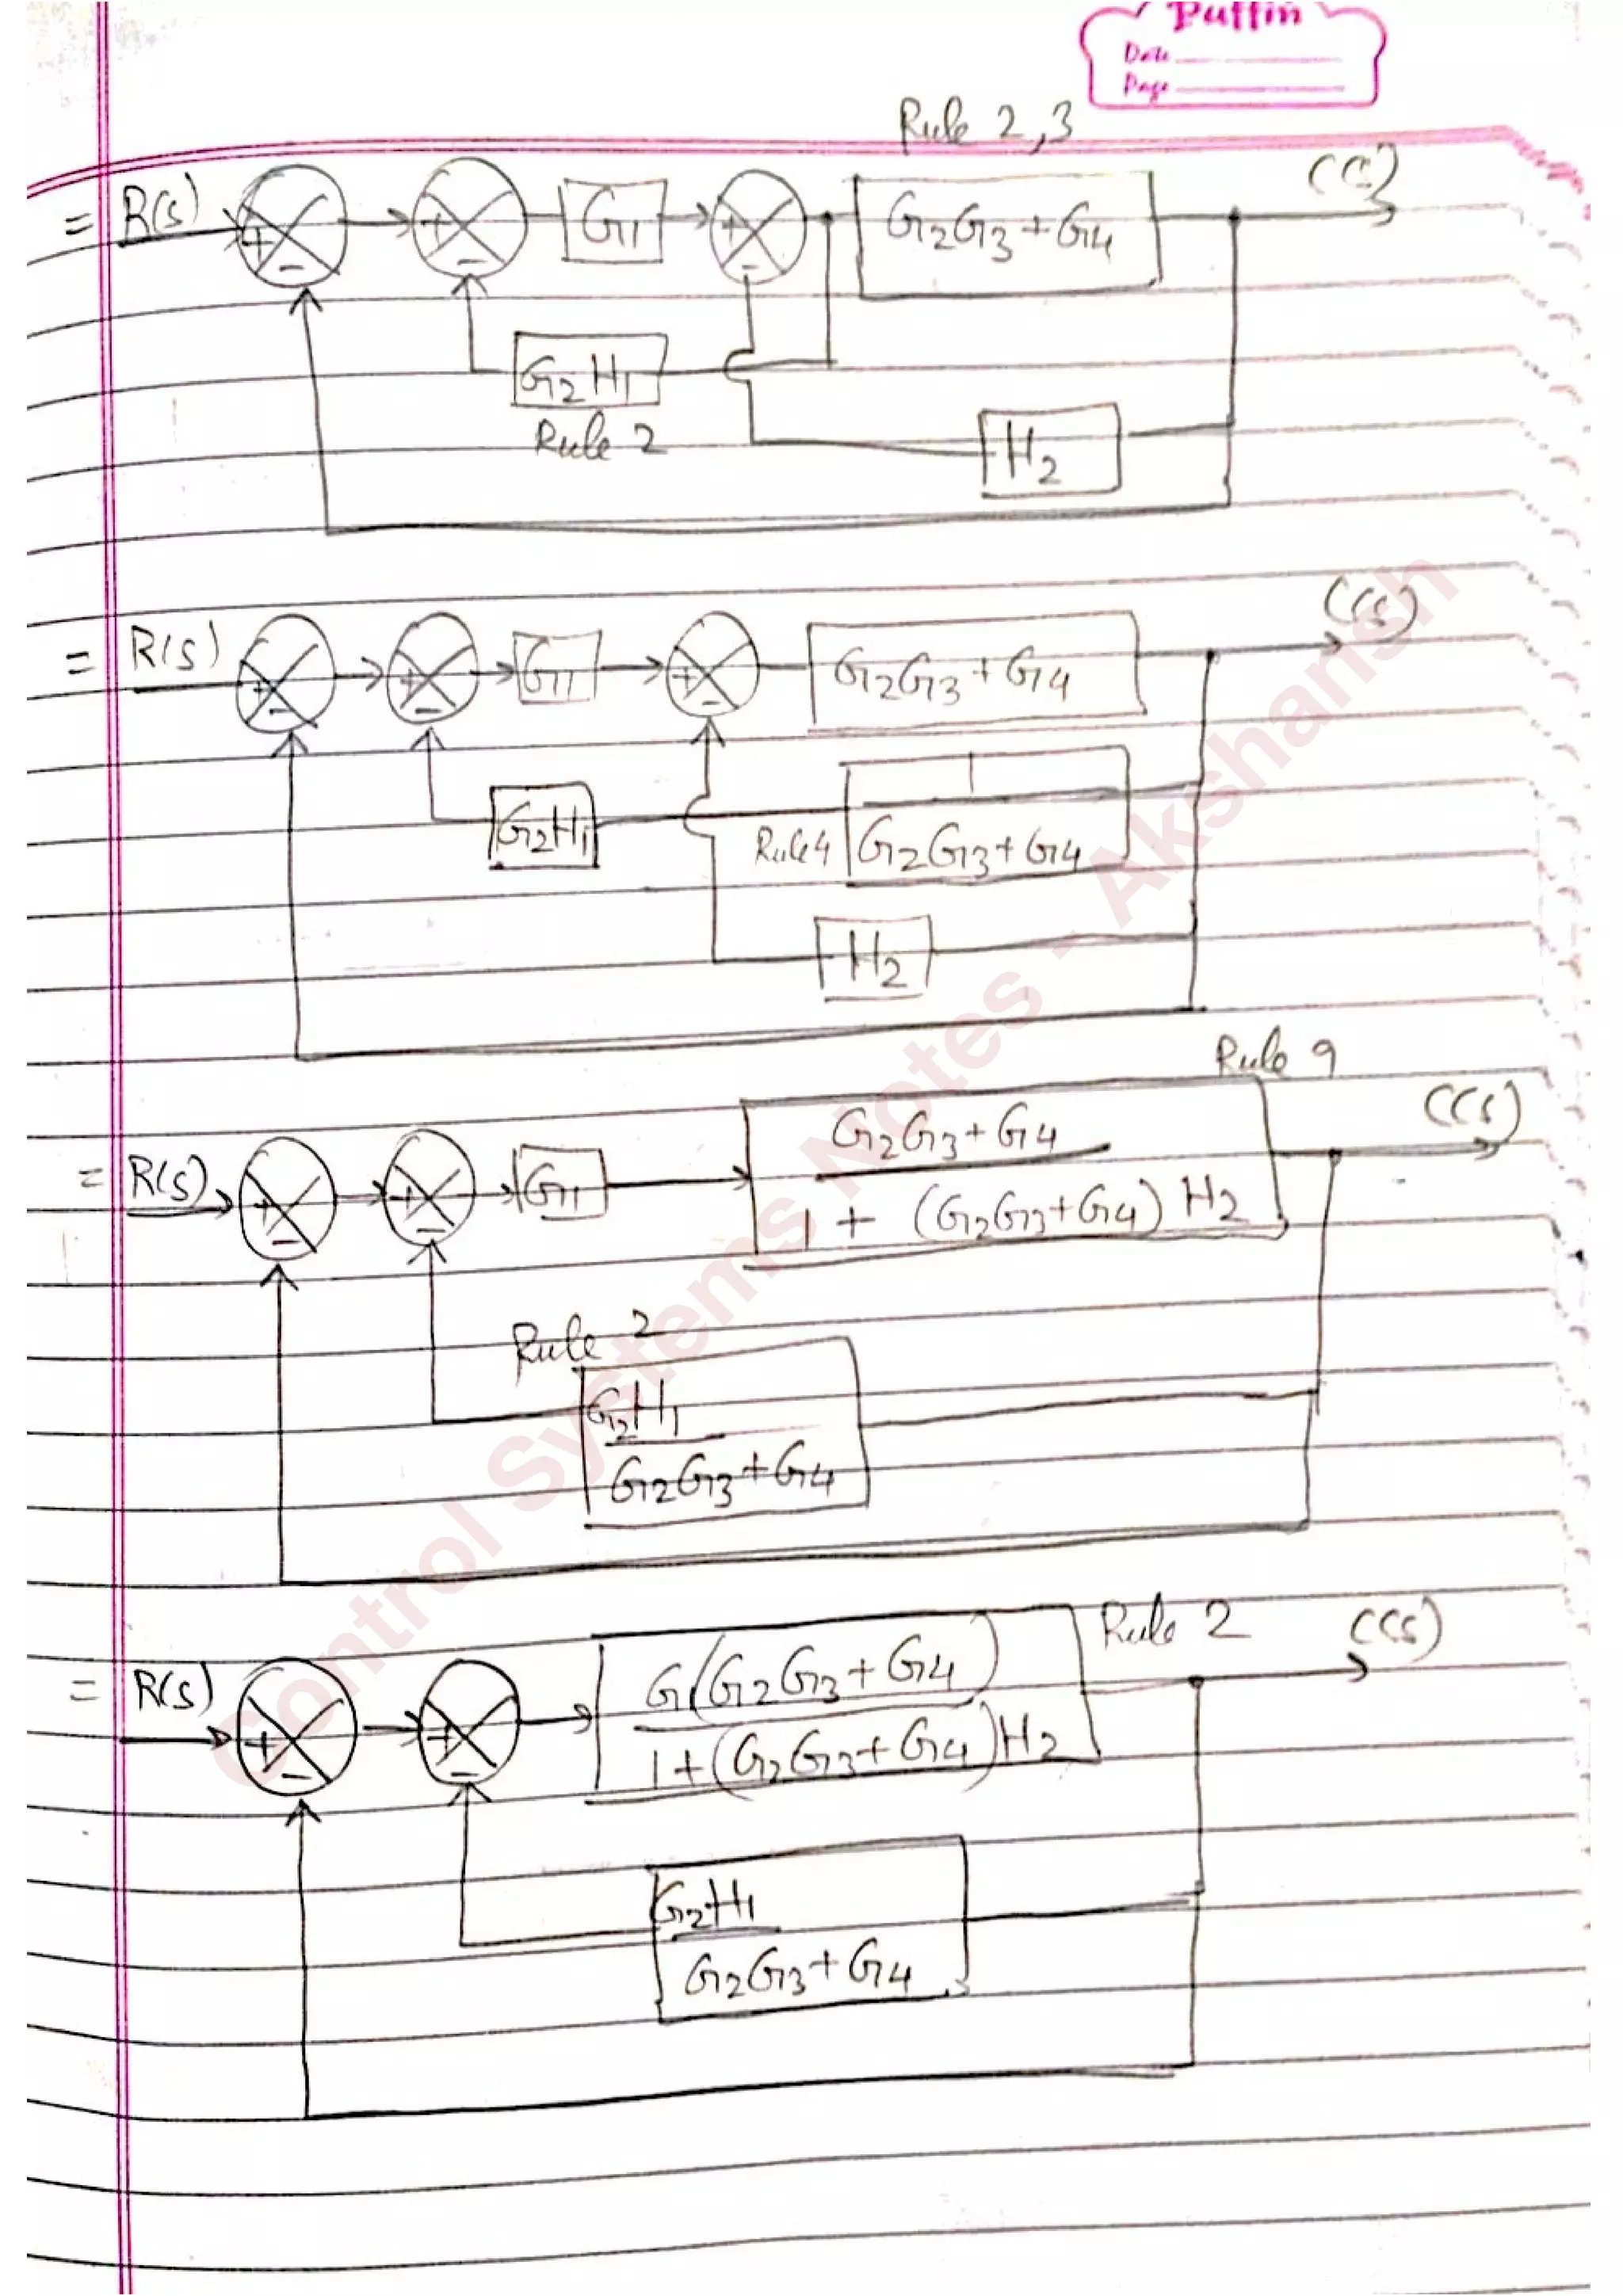 Puffin
Date
Page
Rule 2,3
= R(s) + - + - G1 + - G2G3+G4 C(s)
G2H1
Rule 2
H2
= R(s) + - + - G1 + - G2G3+G4 C(s)
G2H1 Rule 4 1
G2G3+G4
H2
Rule 9
= R(s) + - + - G1 G2G3+G4 C(s)
1 + (G2G3+G4) H2
Rule 2
G2H1
G2G3+G4
Rule 2
= R(s) + - + - G1(G2G3+G4) C(s)
1+(G2G3+G4)H2
G2H1
G2G3+G4
Control Systems Notes - Akshansh